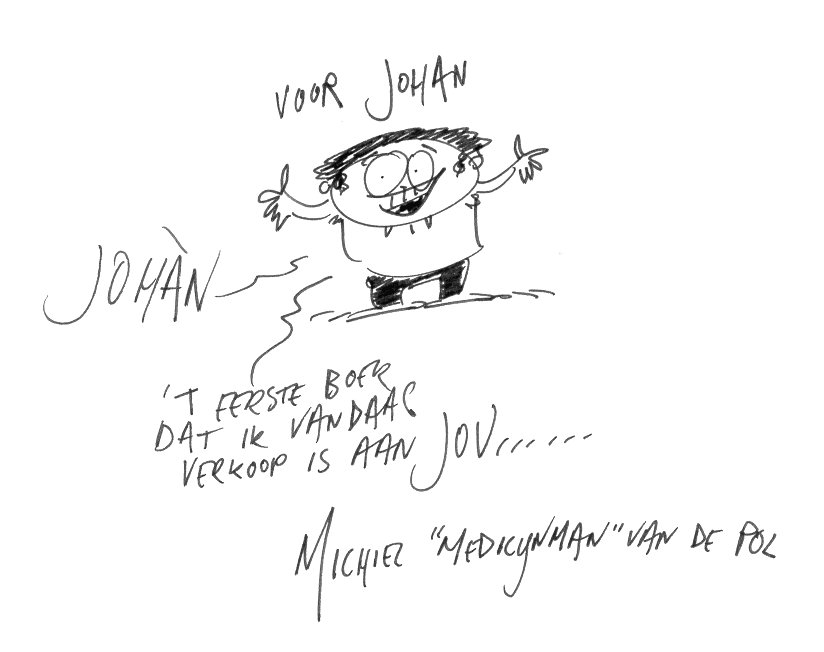 VOOR JOHAN
JOHÀN
'T EERSTE BOEK
DAT IK VANDAAG
VERKOOP IS AAN JOU,,,,,,
MICHIEL "MEDICYNMAN" VAN DE POL